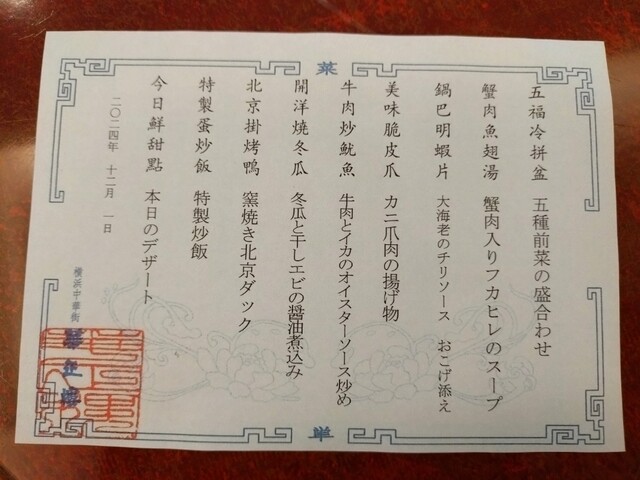 菜
五福冷拼盆 五種前菜の盛合わせ
蟹肉魚翅湯 蟹肉入りフカヒレのスープ
鍋巴明蝦片 大海老のチリソース おこげ添え
美味脆皮爪 カニ爪肉の揚げ物
牛肉炒魷魚 牛肉とイカのオイスターソース炒め
開洋燒冬瓜 冬瓜と干しエビの醤油煮込み
北京掛烤鴨 窯焼き北京ダック
特製蛋炒飯 特製炒飯
今日鮮甜點 本日のデザート
二〇二四年 十二月 一日
横浜中華街
単